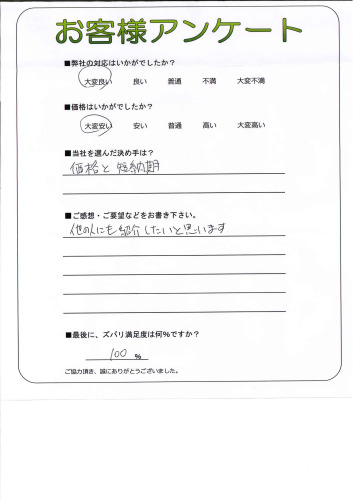 お客様アンケート
■弊社の対応はいかがでしたか?
大変良い 良い 普通 不満 大変不満
■価格はいかがでしたか?
大変安い 安い 普通 高い 大変高い
■当社を選んだ決め手は?
価格と短納期
■ご感想・ご要望などをお書き下さい。
他の人にも紹介したいと思います
■最後に、ズバリ満足度は何%ですか?
100 %
ご協力頂き、誠にありがとうございました。